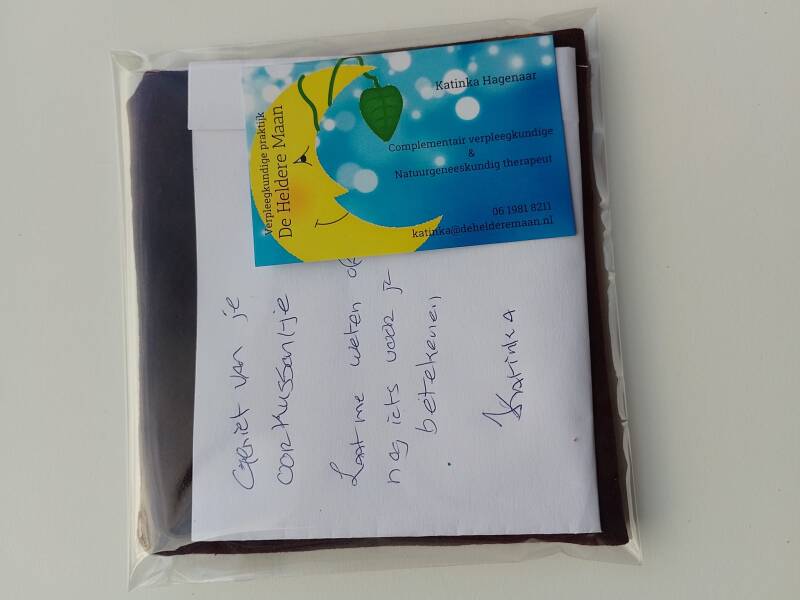 Verpleegkundige praktijk
De Heldere Maan
Katinka Hagenaar
Complementair verpleegkundige
&
Natuurgeneeskundig therapeut
06 1981 8211
katinka@dehelderemaan.nl
Geniet van je
oorkussentje
Laat me weten of
nog iets voor je
betekenen.
Katinka